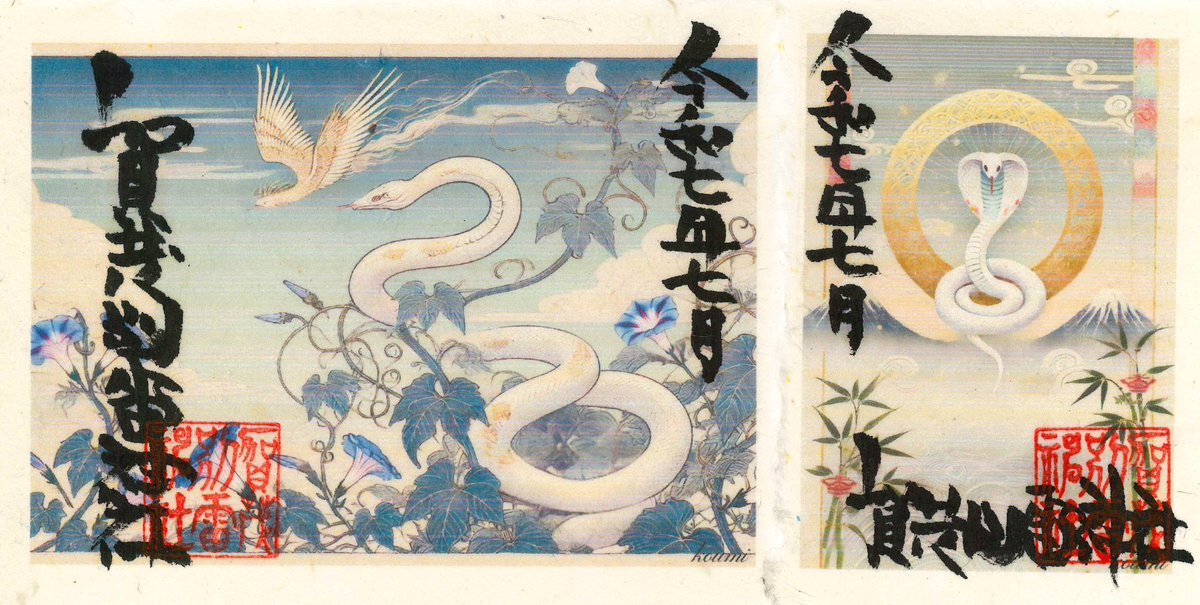 令和七年七月
賀茂別雷神社
賀茂
別雷
神社
koumi
令和七年七月
賀茂別雷神社
賀茂
別雷
神社
koumi